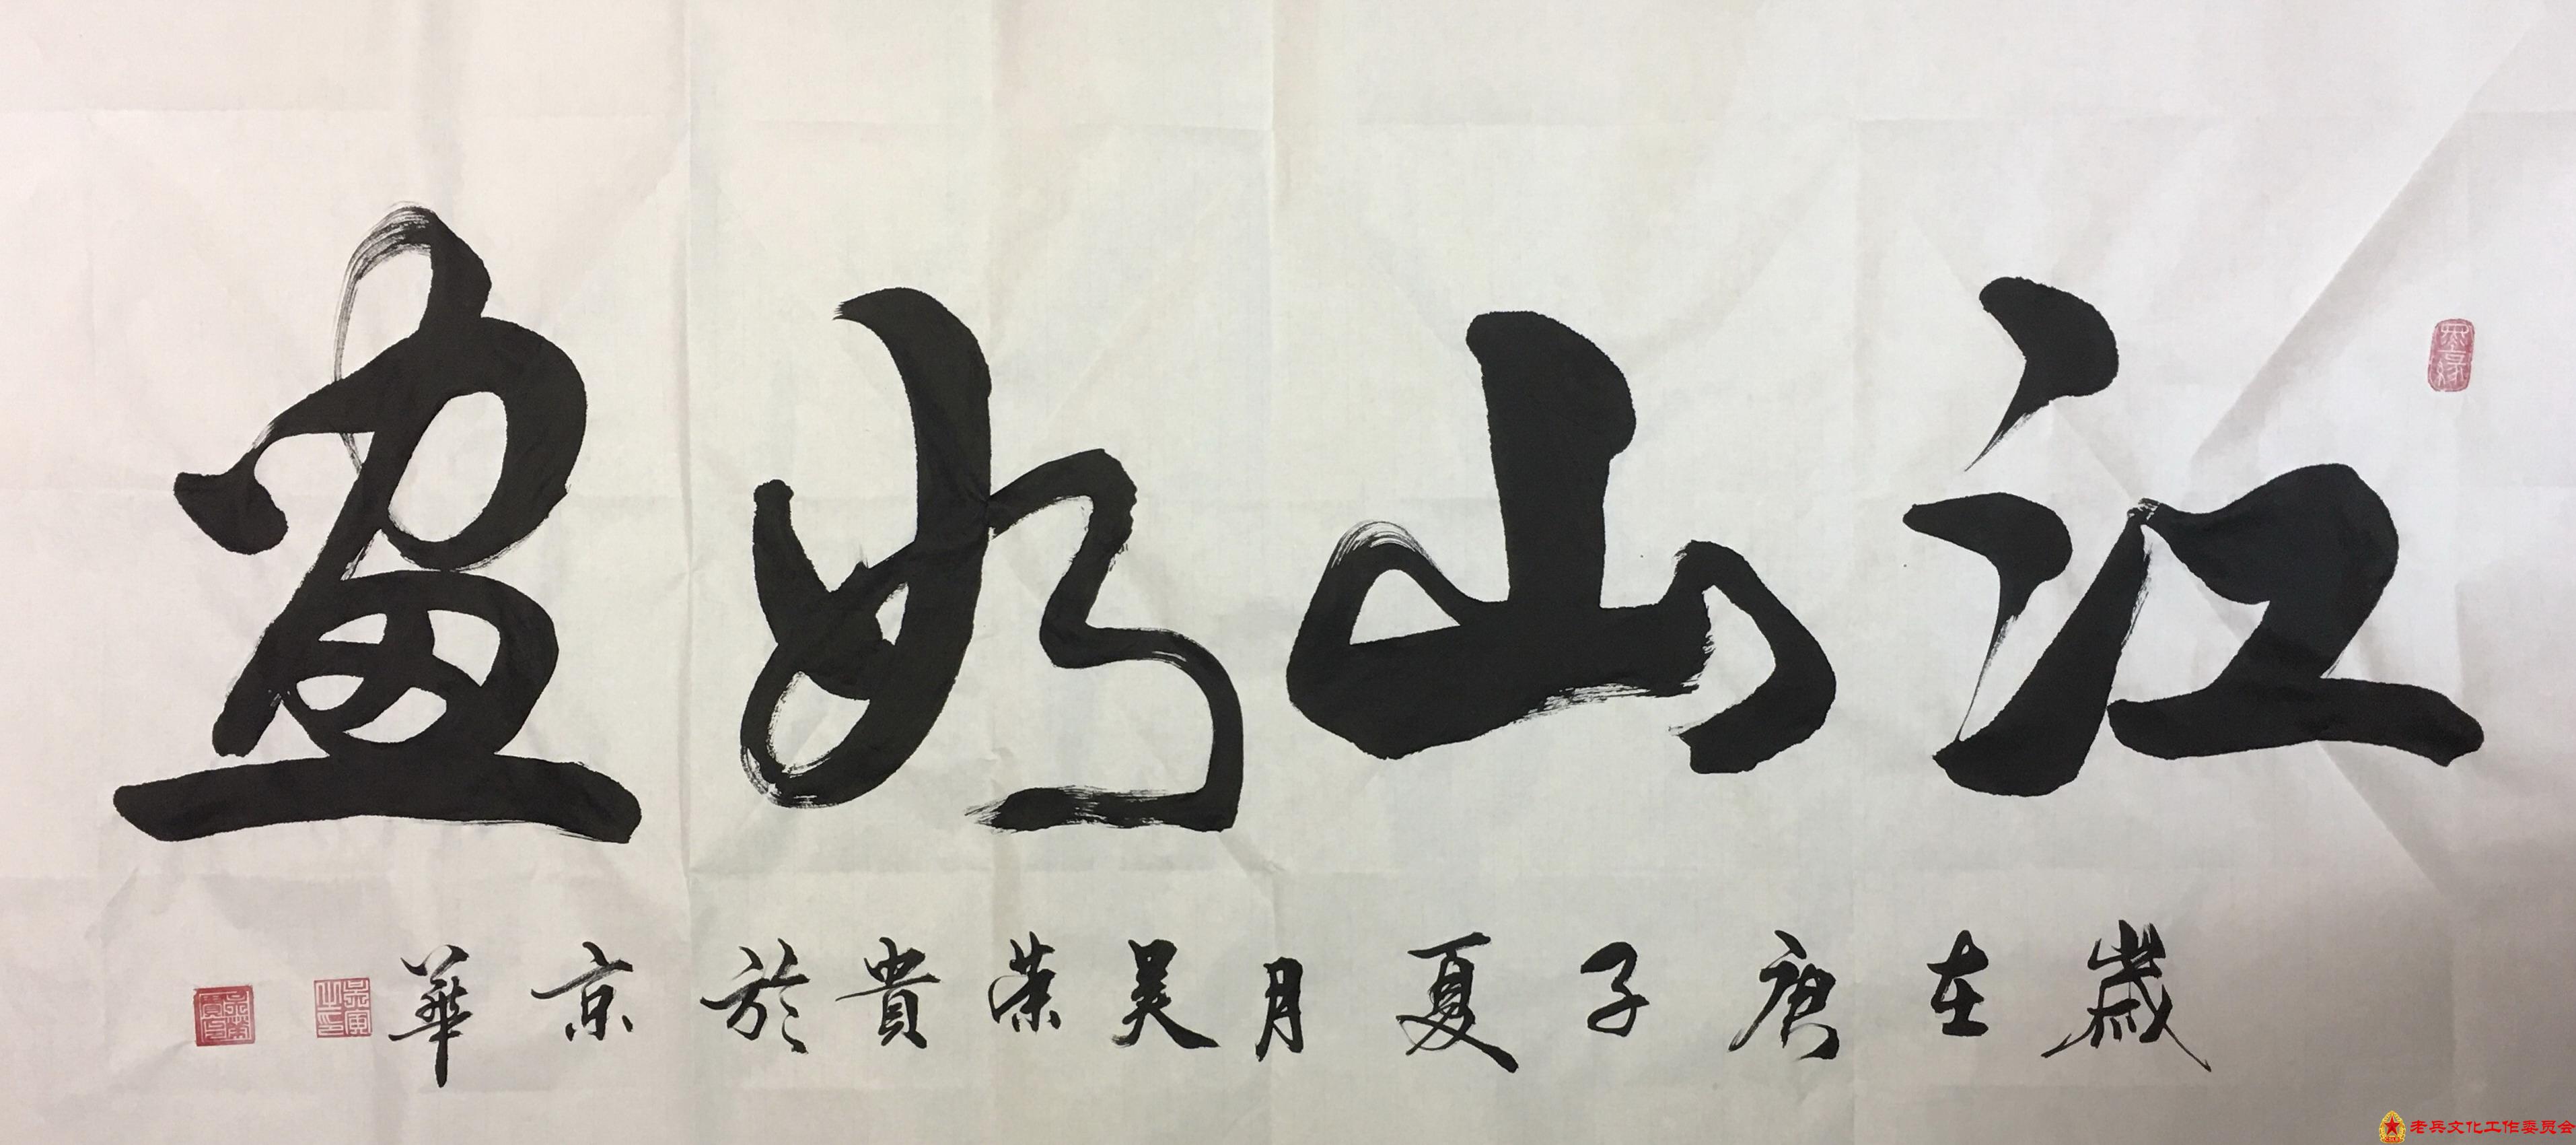 江山如畫
歲在庚子夏月吴荣貴於京華
老兵文化工作委员会